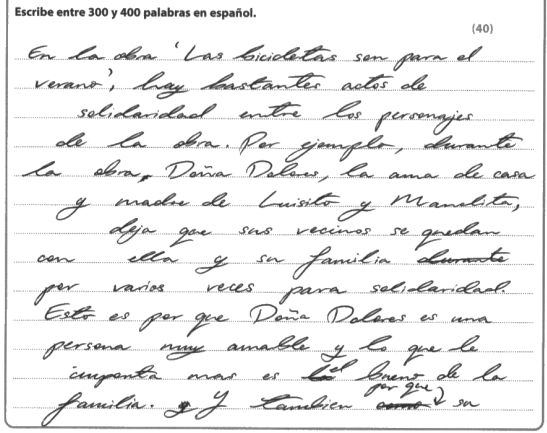 Escribe entre 300 y 400 palabras en español.
(40)
En la obra 'Las bicicletas son para el
verano', hay bastantes actos de
solidaridad entre los personajes
de la obra. Por ejemplo, durante
la obra, Doña Dolores, la ama de casa
y madre de Luisito y Manolita,
deja que sus vecinos se quedan
con ella y su familia durante
por varios veces para solidaridad.
Esto es por que Doña Dolores es una
persona muy amable y lo que le
imponta mas es el bueno de la
familia. Y tambien como por que su